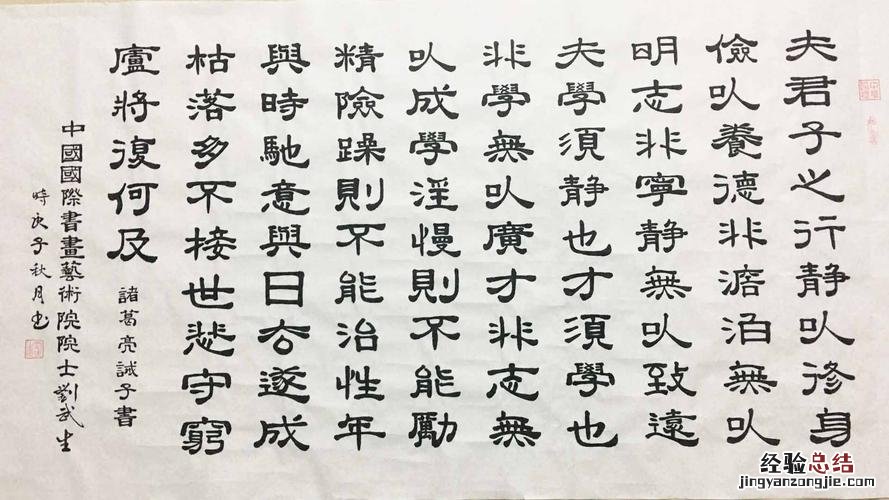 夫君子之行静以修身
儉以養德非澹泊無以
明志非寧静無以致遠
夫學須静也才須學也
非學無以廣才非志無
以成學淫慢則不能勵
精險躁則不能治性年
與時馳意與日去遂成
枯落多不接世悲守窮
廬將復何及
諸葛亮誡子書
中國國際書畫藝術院院士劉武生
時庚子秋月书
经验总结
jingyanzongjie.com